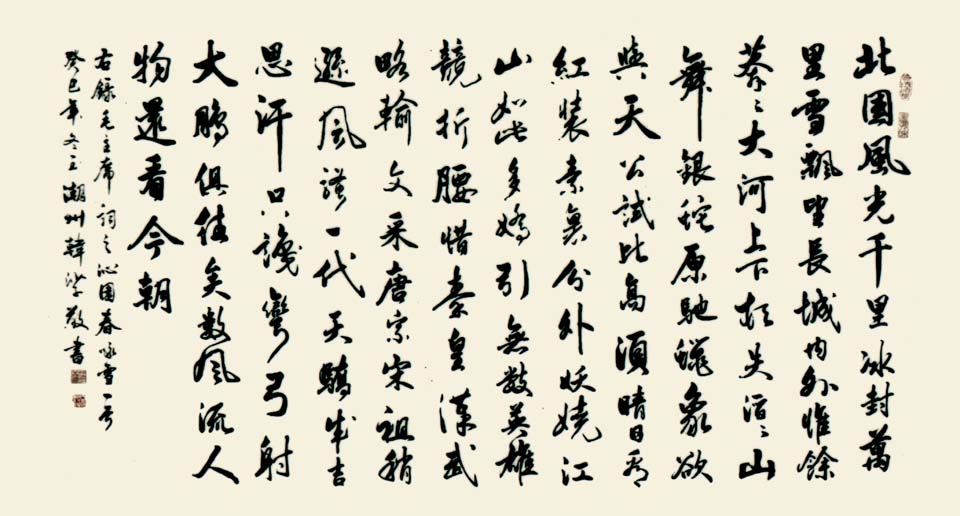 北國風光千里冰封萬
里雪飄望長城內外惟餘
莽〻大河上下頓失滔〻山
舞銀蛇原馳蠟象欲
與天公試比高須晴日看
紅裝素裹分外妖嬈江
山如此多嬌引無數英雄
競折腰惜秦皇漢武
略輸文采唐宗宋祖稍
遜風騷一代天驕成吉
思汗只識彎弓射
大鵰俱往矣數風流人
物還看今朝
右錄毛主席詞之沁園春咏雪一首
癸巳年冬潮州韓書